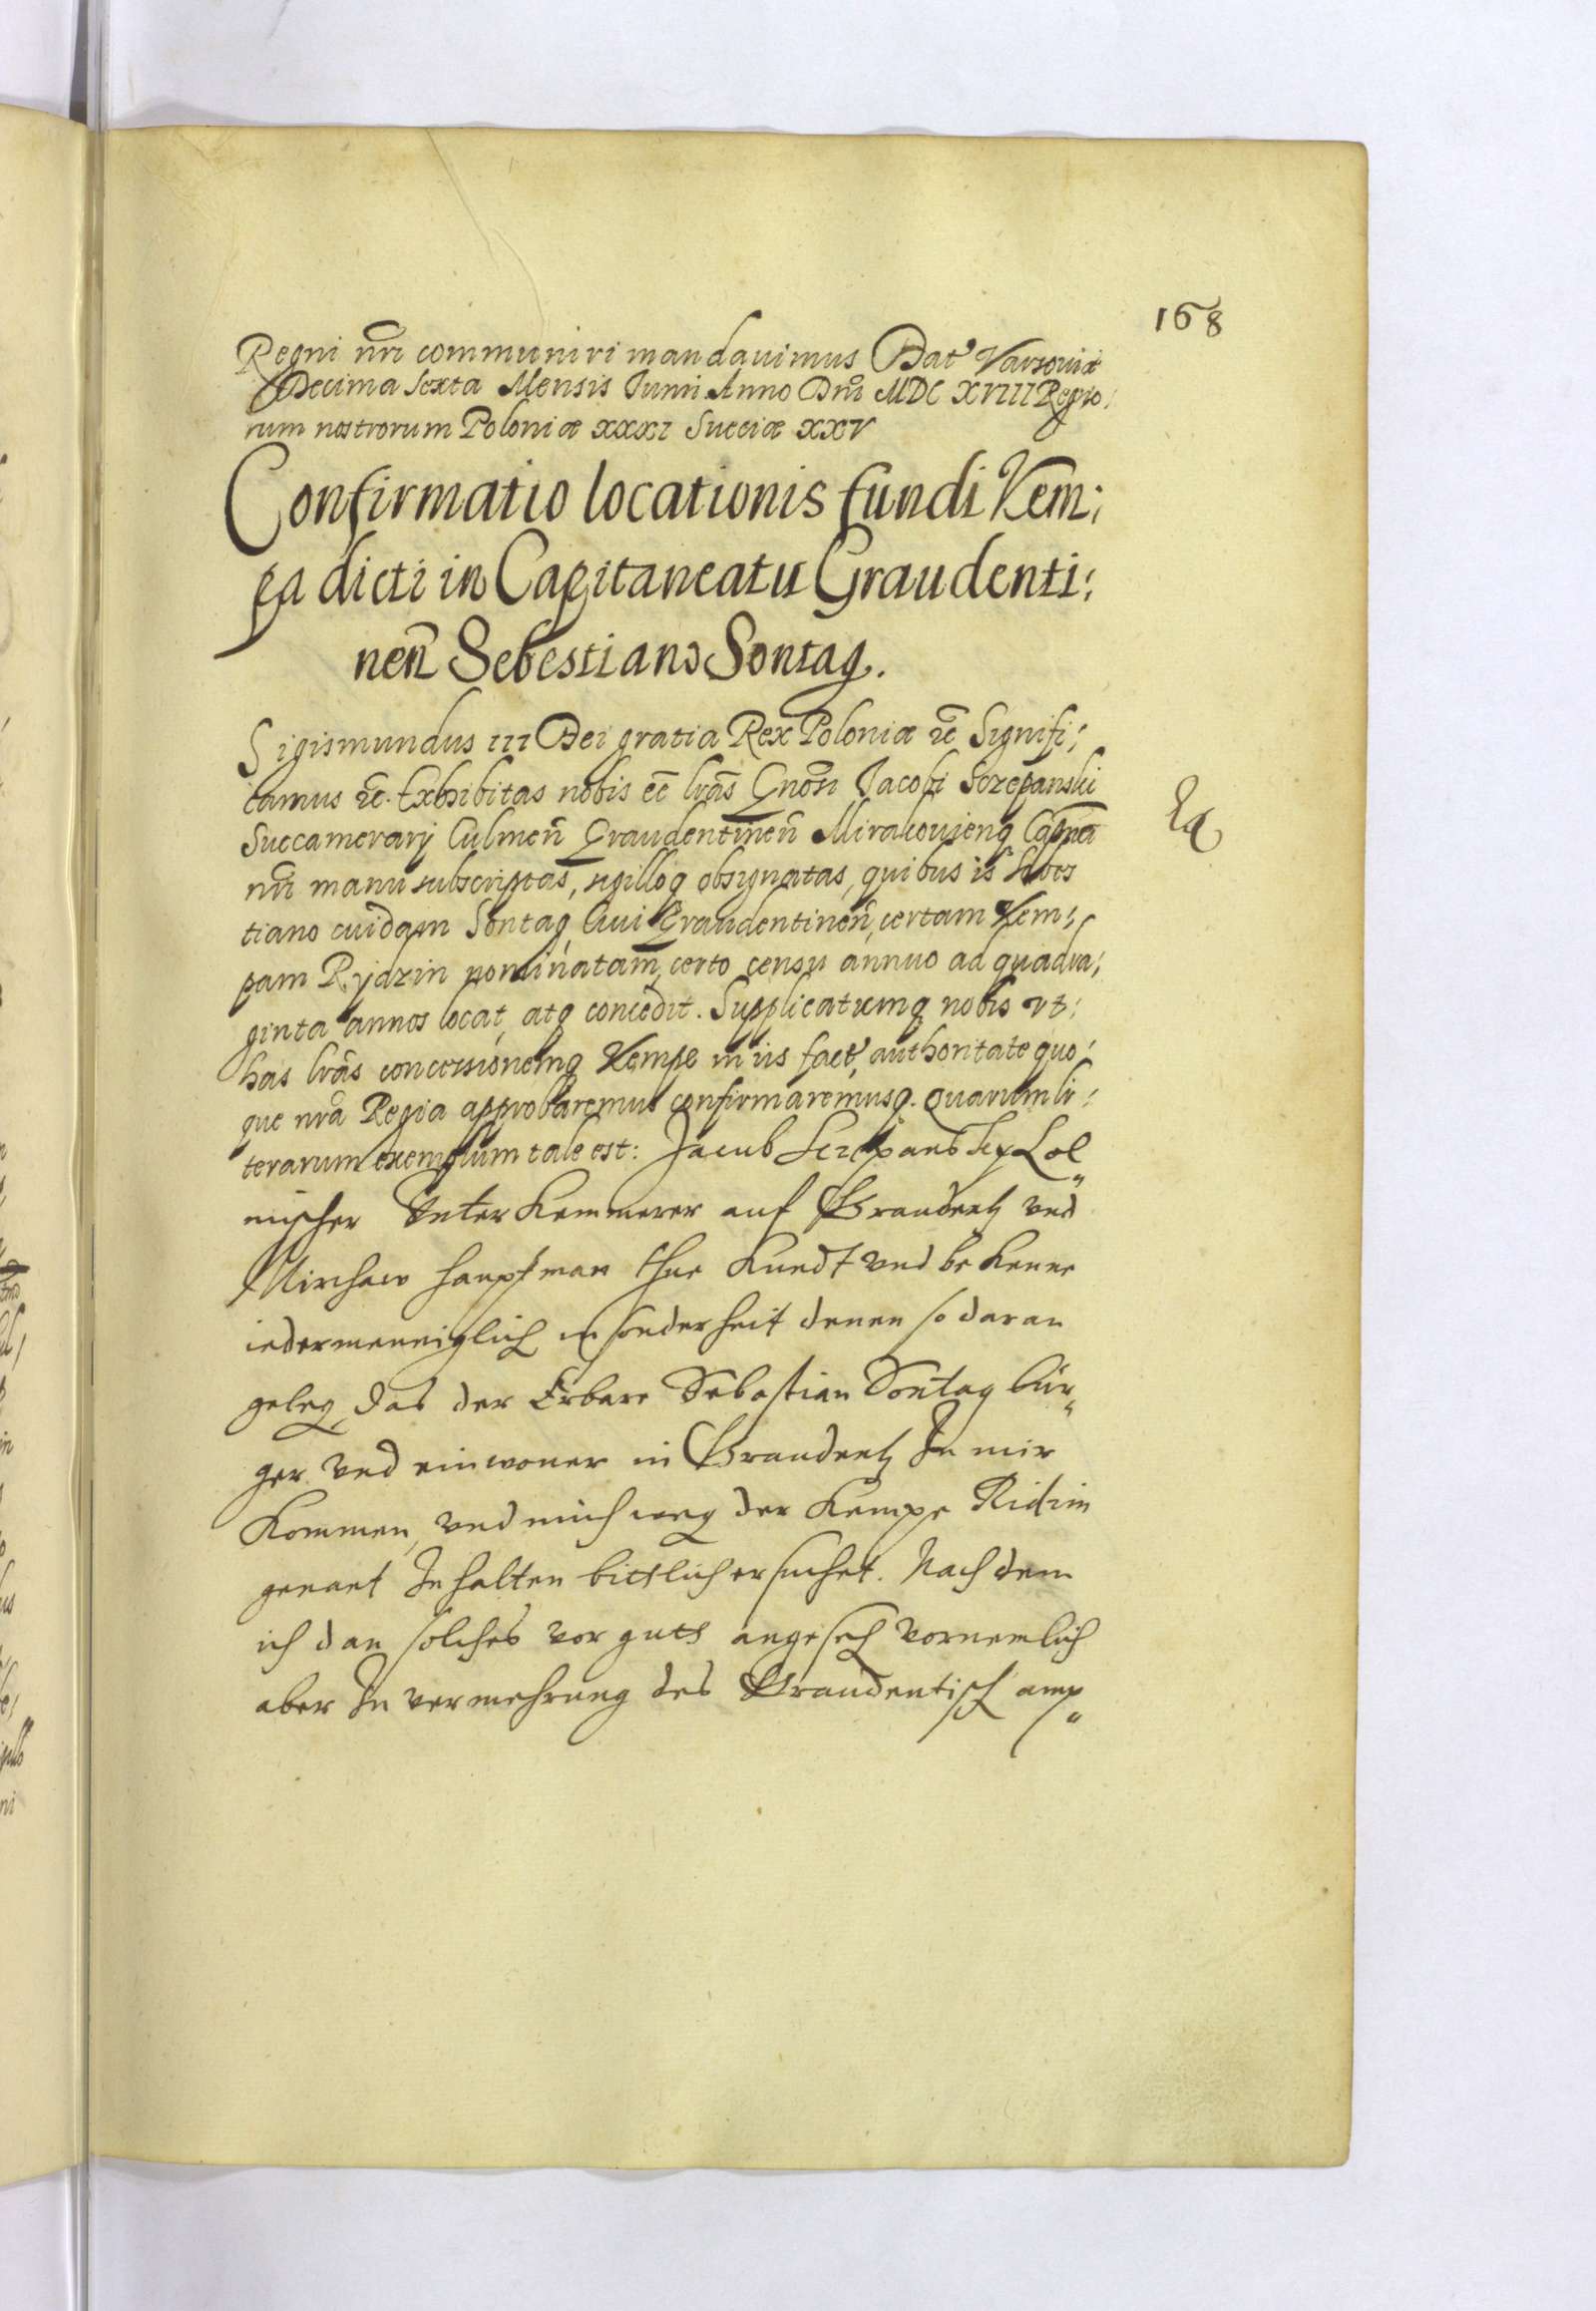 168
Regni nri communiri mandauimus Dat Varsouiæ
Decima Sexta Mensis Iunii Anno Dni MDC XVIII Regno:
rum nostrorum Poloniæ XXXI Sueciæ XXV
Confirmatio locationis fundi Kem:
pa dicti in Capitaneatu Graudenti:
nen Sebestiano Sontag.
Sigismundus III Dei gratia Rex Poloniæ &c Signifi:
camus &c. Exhibitas nobis ee lras Gnosi Jacobi Sczepanski
Succamerarij Culmen Graudentinen Miracouienq Capnei
nri manu subscriptas, sigilloq obsignatas, quibus is Sebes
tiano cuidam Sontag Ciui Graudentinen, certam Kem:
pam Rydzin nominatam, certo censu annuo ad quadra:
ginta annos locat, atq concedit. Supplicatumq nobis vt:
has lras concessionemq Kempe in iis fact, authoritate quo:
que nra Regia approbaremus confirmaremusq. Quarum lit:
terarum exemplum tale est: Jacub Sczepansky Col
mischer Vnter Kemmerer auf Graudentz vnd
Mirchaw hauptman thue Kundt vnd bekenne
iedermenniglich in sonderheit denen so daran
geleg, das der Erbare Sebastian Sontag bür
ger vnd einwoner in Graudentz Zu mir
Kommen, vnd mich weg der Kempe Ridzin
genant Zu halten bittlich ersuchet. Nach dem
ich dan solches vor guth angeseh vornemlich
aber Zu vermehrung des Graudentisch amp